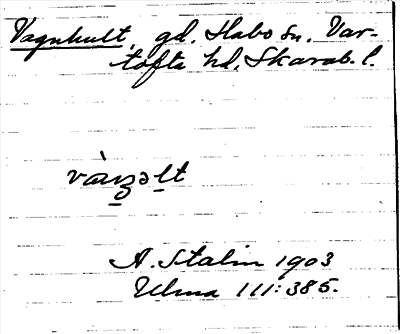 Vagnhult, gd. Habo sn. Var-
tofta hd. Skarab. l.
vàꞑəlt
A. Stalin 1903
Ulma 111:385.